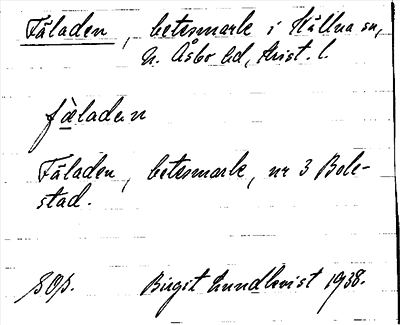 Fäladen, betesmark i Källna sn,
N. Åsbo hd, Krist. l.
fäladen
Fäladen, betesmark, nr 3 Bole-
stad.
Birgit Lundkvist 1938.